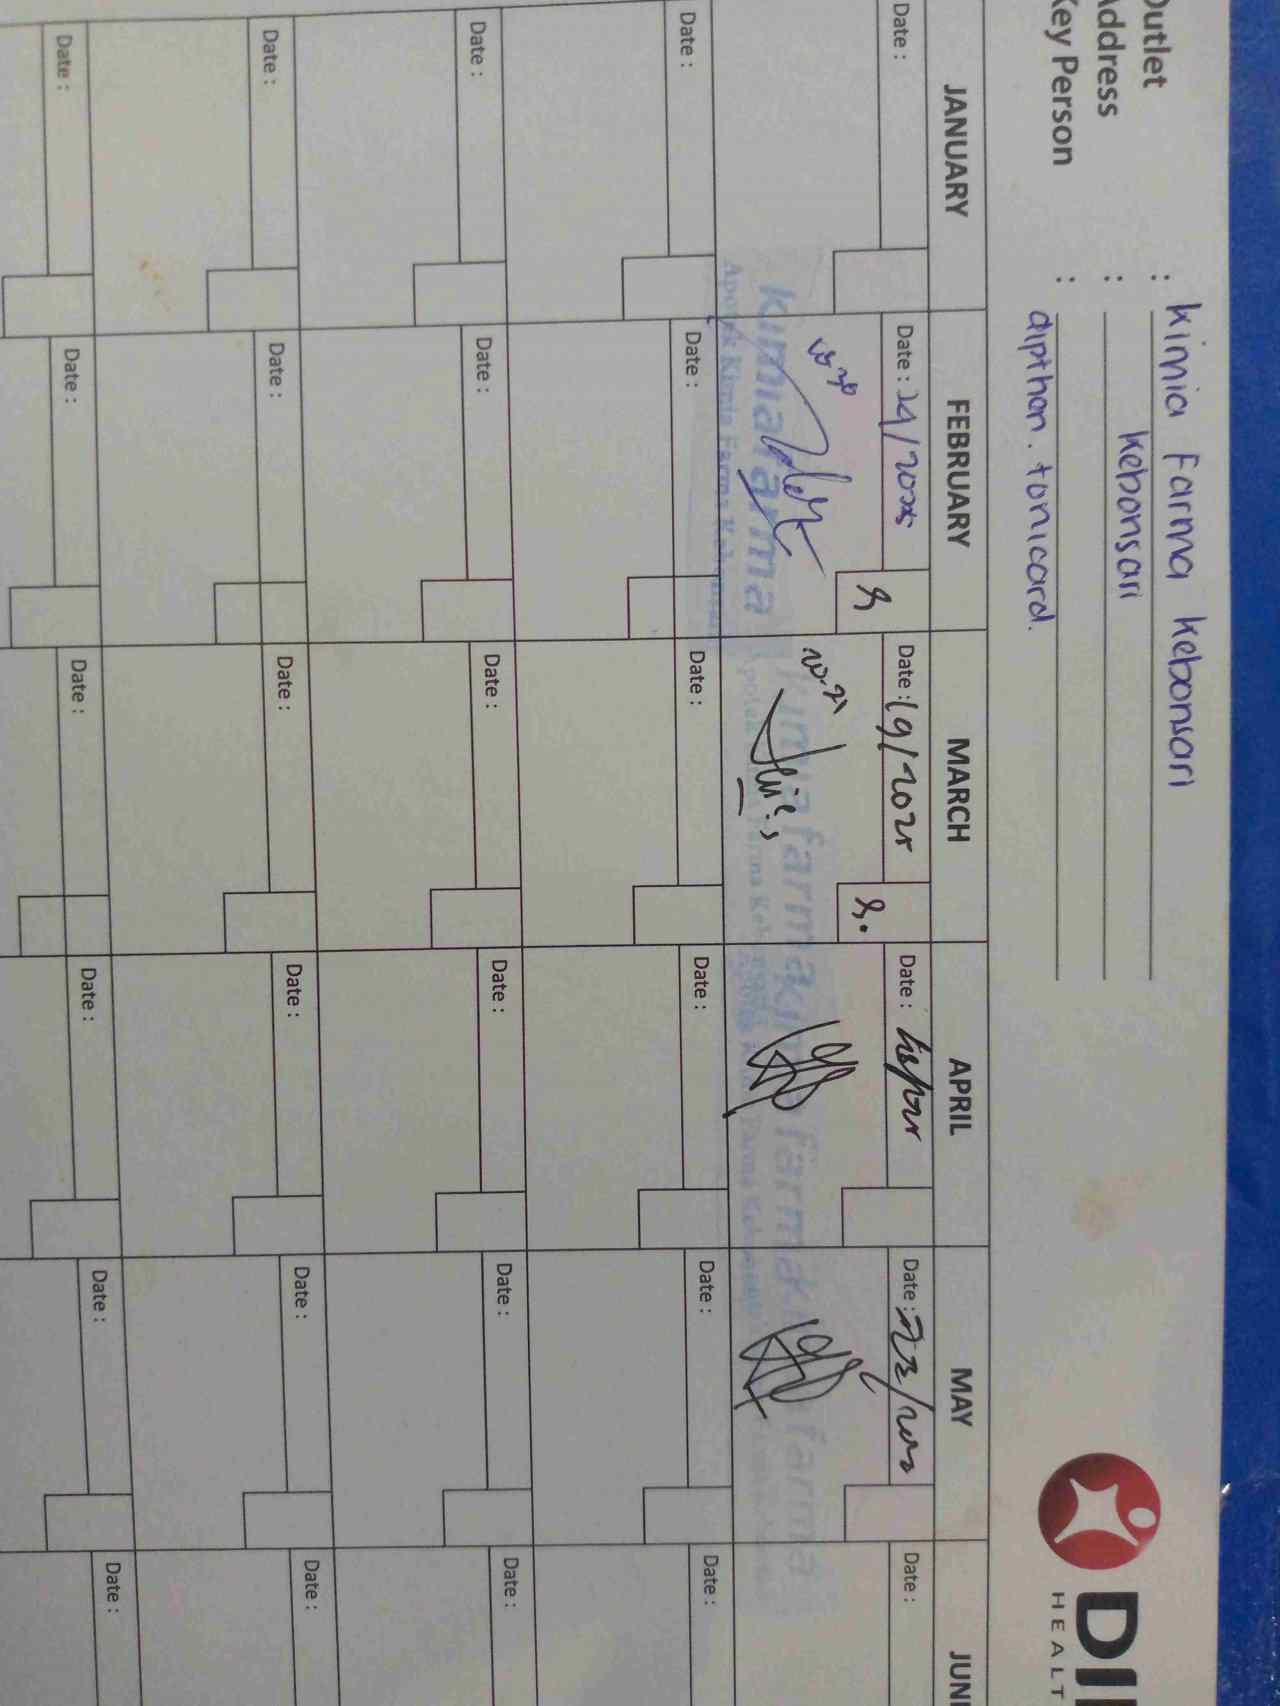 Outlet : Kimia Farma Kebonsari
Address : Kebonsari
Key Person : dipthon. tonicard.
JANUARY FEBRUARY MARCH APRIL MAY JUNE
Date : Date : 24/2025 Date : 19/2025 Date : Date : Date :
kimia farma kimia farma kimia farma kimia farma
Apotek Kimia Farma Kebonsari
Date : Date : Date : Date : Date : Date :
Date : Date : Date : Date : Date : Date :
Date : Date : Date : Date : Date : Date :
Date : Date : Date : Date : Date : Date :